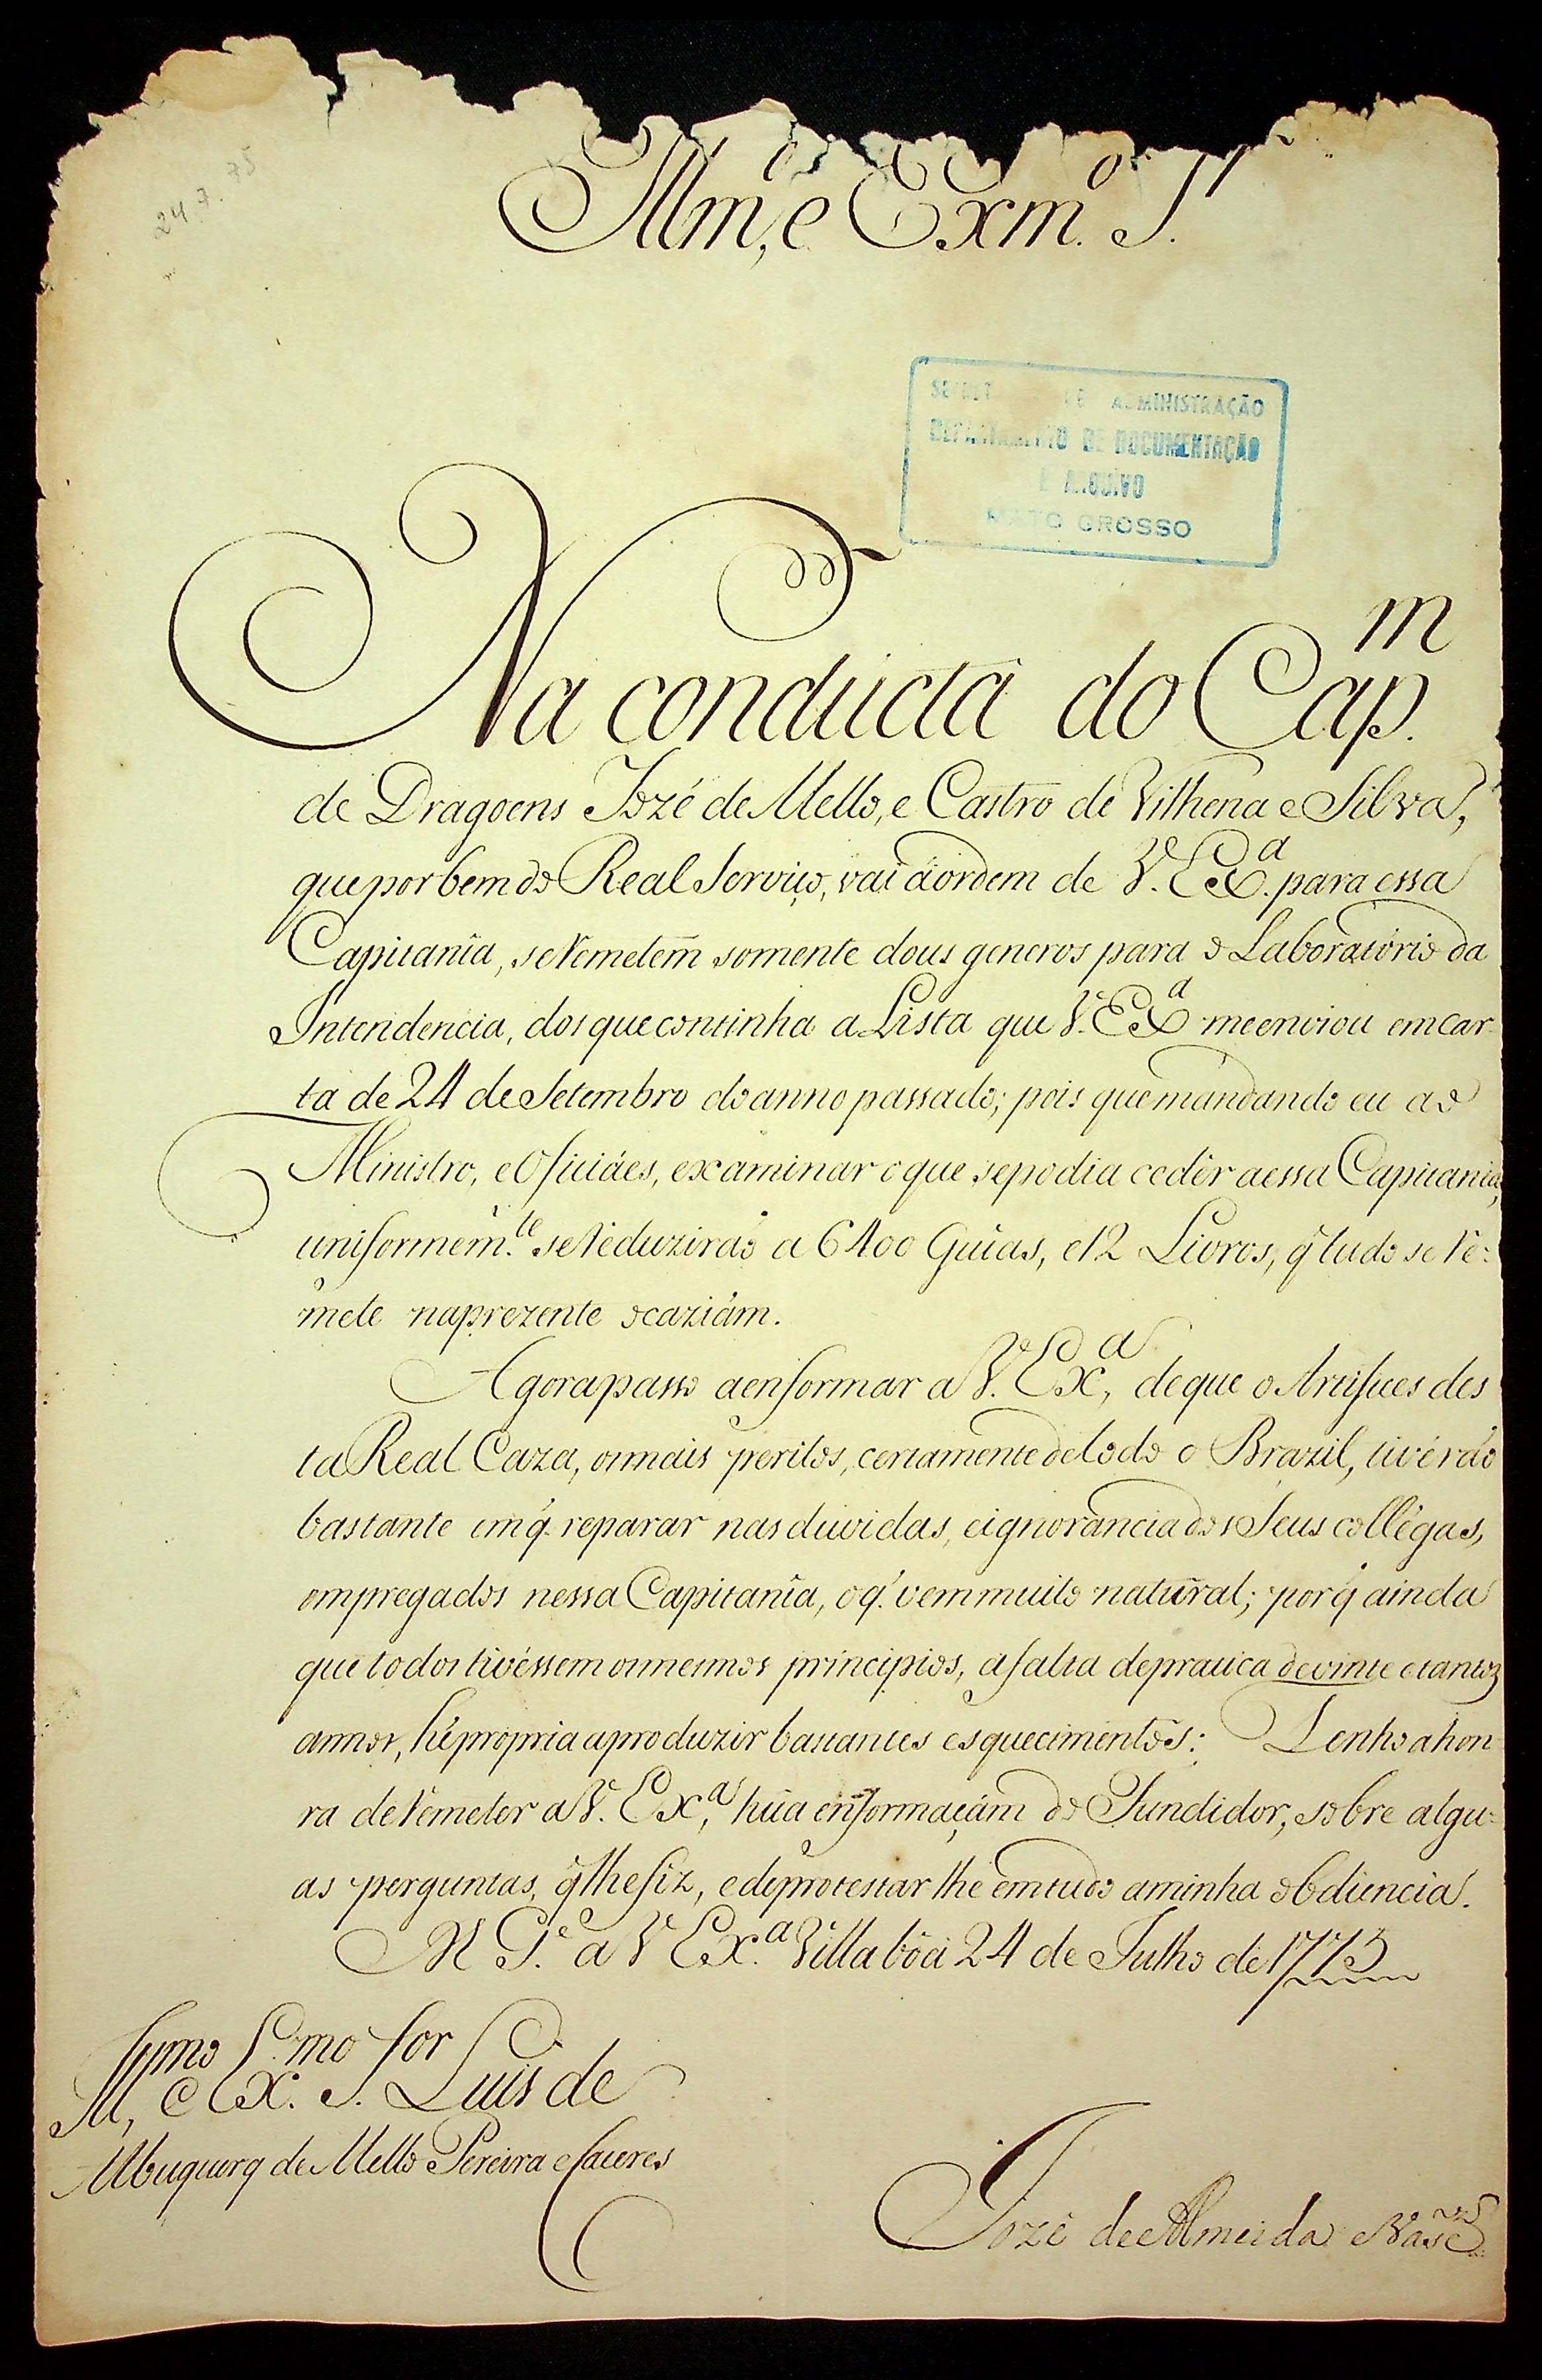 24.7.75
Illm.º, e Exm.º S.r
ADMINISTRAÇÃO
DEPARTAMENTO DE DOCUMENTAÇÃO
E ARQUIVO
MATO GROSSO
Na conducta do Cap.m
de Dragoens Jozé de Mello, e Castro de Vilhena e Silva,
que por bem do Real Serviço, vai á ordem de V. Ex.a para essa
Capitanîa, se remetem somente dous generos para o Laboratório da
Intendencia, dos que continha a Lista que V. Ex.a me enviou em car-
ta de 24 de Setembro do anno passado; pois que mandando eu ao
Ministro, e Oficiáes, examinar o que se podia cedêr a essa Capitania,
uniformem.te se reduziráo a 6400 Guias, e 12 Livros, q̃ tudo se re-
mete na prezente ocaziám.
Agora passo a enformar a V. Ex.a, de que o Artifices des
ta Real Caza, os mais peritos, certamente de todo o Brazil, tivéráo
bastante em q̃ reparar nas duvidas, e ignorancia dos Seus collégas,
empregados nessa Capitanîa, o q̃. vem muito natural; porq̃ ainda
que todos tivéssem os mesmos principios, a falta de pratica de vinte e tantos
annos, hé propria a produzir bastantes esquecimentos: Tenho a hon
ra de remeter a V. Ex.a, húa enformaçám do Fundidor, sobre algu-
as perguntas, q̃ lhe fiz, e de protestar lhe em tudo a minha obdiencia.
G.e a V Ex.a Villa bôa 24 de Julho de 1775
Ill.mo, e Ex.mo S.or Luis de
Albuquerq de Mello Pereira e Caceres
Jozé de Almeida e Vas.cos